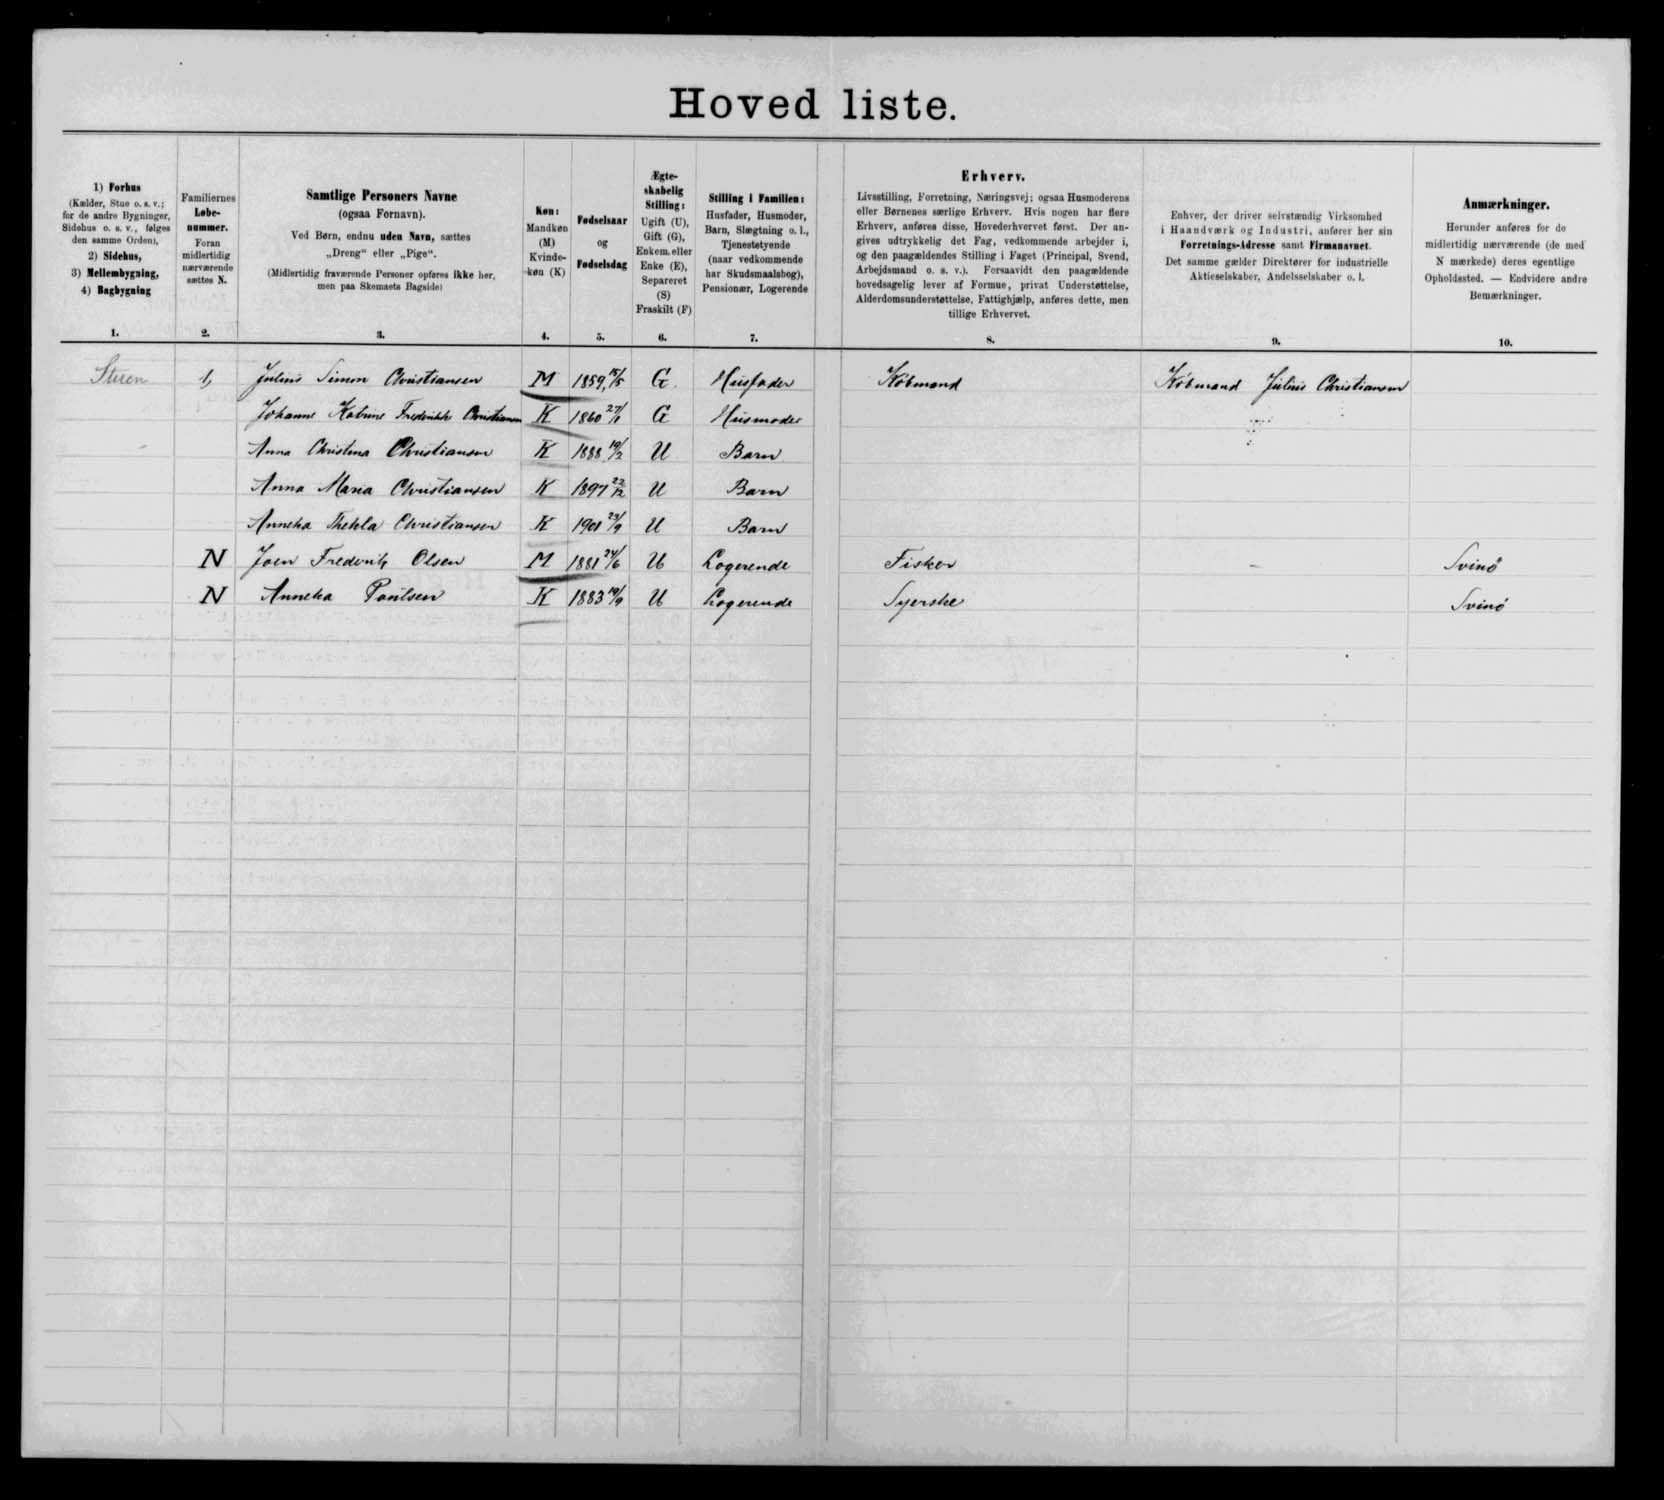 Hoved liste.
1) Forhus
(Kælder, Stue o. s. v.;
for de andre Bygninger,
Sidehus o. s. v., følges
den samme Orden),
2) Sidehus,
3) Mellembygning,
4) Bagbygning
1.
Familiernes
Løbe-
nummer.
Foran
midlertidig
nærværende
sættes N.
2.
Samtlige Personers Navne
(ogsaa Fornavn).
Ved Børn, endnu uden Navn, sættes
„Dreng“ eller „Pige“.
(Midlertidig fraværende Personer opføres ikke her,
men paa Skemaets Bagside)
3.
Køn:
Mandkøn
(M)
Kvinde-
køn (K)
4.
Fødselsaar
og
Fødselsdag
5.
Ægte-
skabelig
Stilling:
Ugift (U),
Gift (G),
Enkem. eller
Enke (E),
Separeret
(S)
Fraskilt (F)
6.
Stilling i Familien:
Husfader, Husmoder,
Barn, Slægtning o. l.,
Tjenestetyende
(naar vedkommende
har Skudsmaalsbog),
Pensionær, Logerende
7.
Erhverv.
Livsstilling, Forretning, Næringsvej; ogsaa Husmoderens
eller Børnenes særlige Erhverv. Hvis nogen har flere
Erhverv, anføres disse, Hovederhvervet først. Der an-
gives udtrykkelig det Fag, vedkommende arbejder i,
og den paagældendes Stilling i Faget (Principal, Svend,
Arbejdsmand o. s. v.). Forsaavidt den paagældende
hovedsagelig lever af Formue, privat Understøttelse,
Alderdomsunderstøttelse, Fattighjælp, anføres dette, men
tillige Erhvervet.
8.
Enhver, der driver selvstændig Virksomhed
i Haandværk og Industri, anfører her sin
Forretnings-Adresse samt Firmanavnet.
Det samme gælder Direktører for industrielle
Aktieselskaber, Andelsselskaber o. l.
9.
Anmærkninger.
Herunder anføres for de
midlertidig nærværende (de med
N mærkede) deres egentlige
Opholdssted. — Endvidere andre
Bemærkninger.
10.
Stuen 1, Julius Simon Christiansen M 1859, 15/5 G. Husfader Købmand Købmand Julius Christiansen
Johanne Katrine Frederikke Christiansen K 1860 27/1 G Husmoder
Anna Christina Christiansen K 1888 19/2 U Barn
Anna Maria Christiansen K 1897 22/12 U Barn
Anneka Thekla Christiansen K 1901 23/9 U Barn
N Joen Frederik Olsen M 1881 24/6 U Logerende Fisker - Svinø
N Anneka Poulsen K 1883 19/9 U Logerende Syerske Svinø